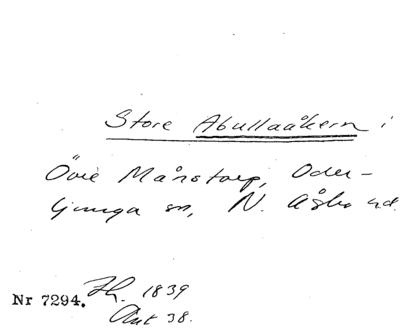 Store Abullaåkern i
Övre Månstorp, Oder-
ljunga sn, N. Åsbo hd.
Nr 7294. 1839
Akt 38.